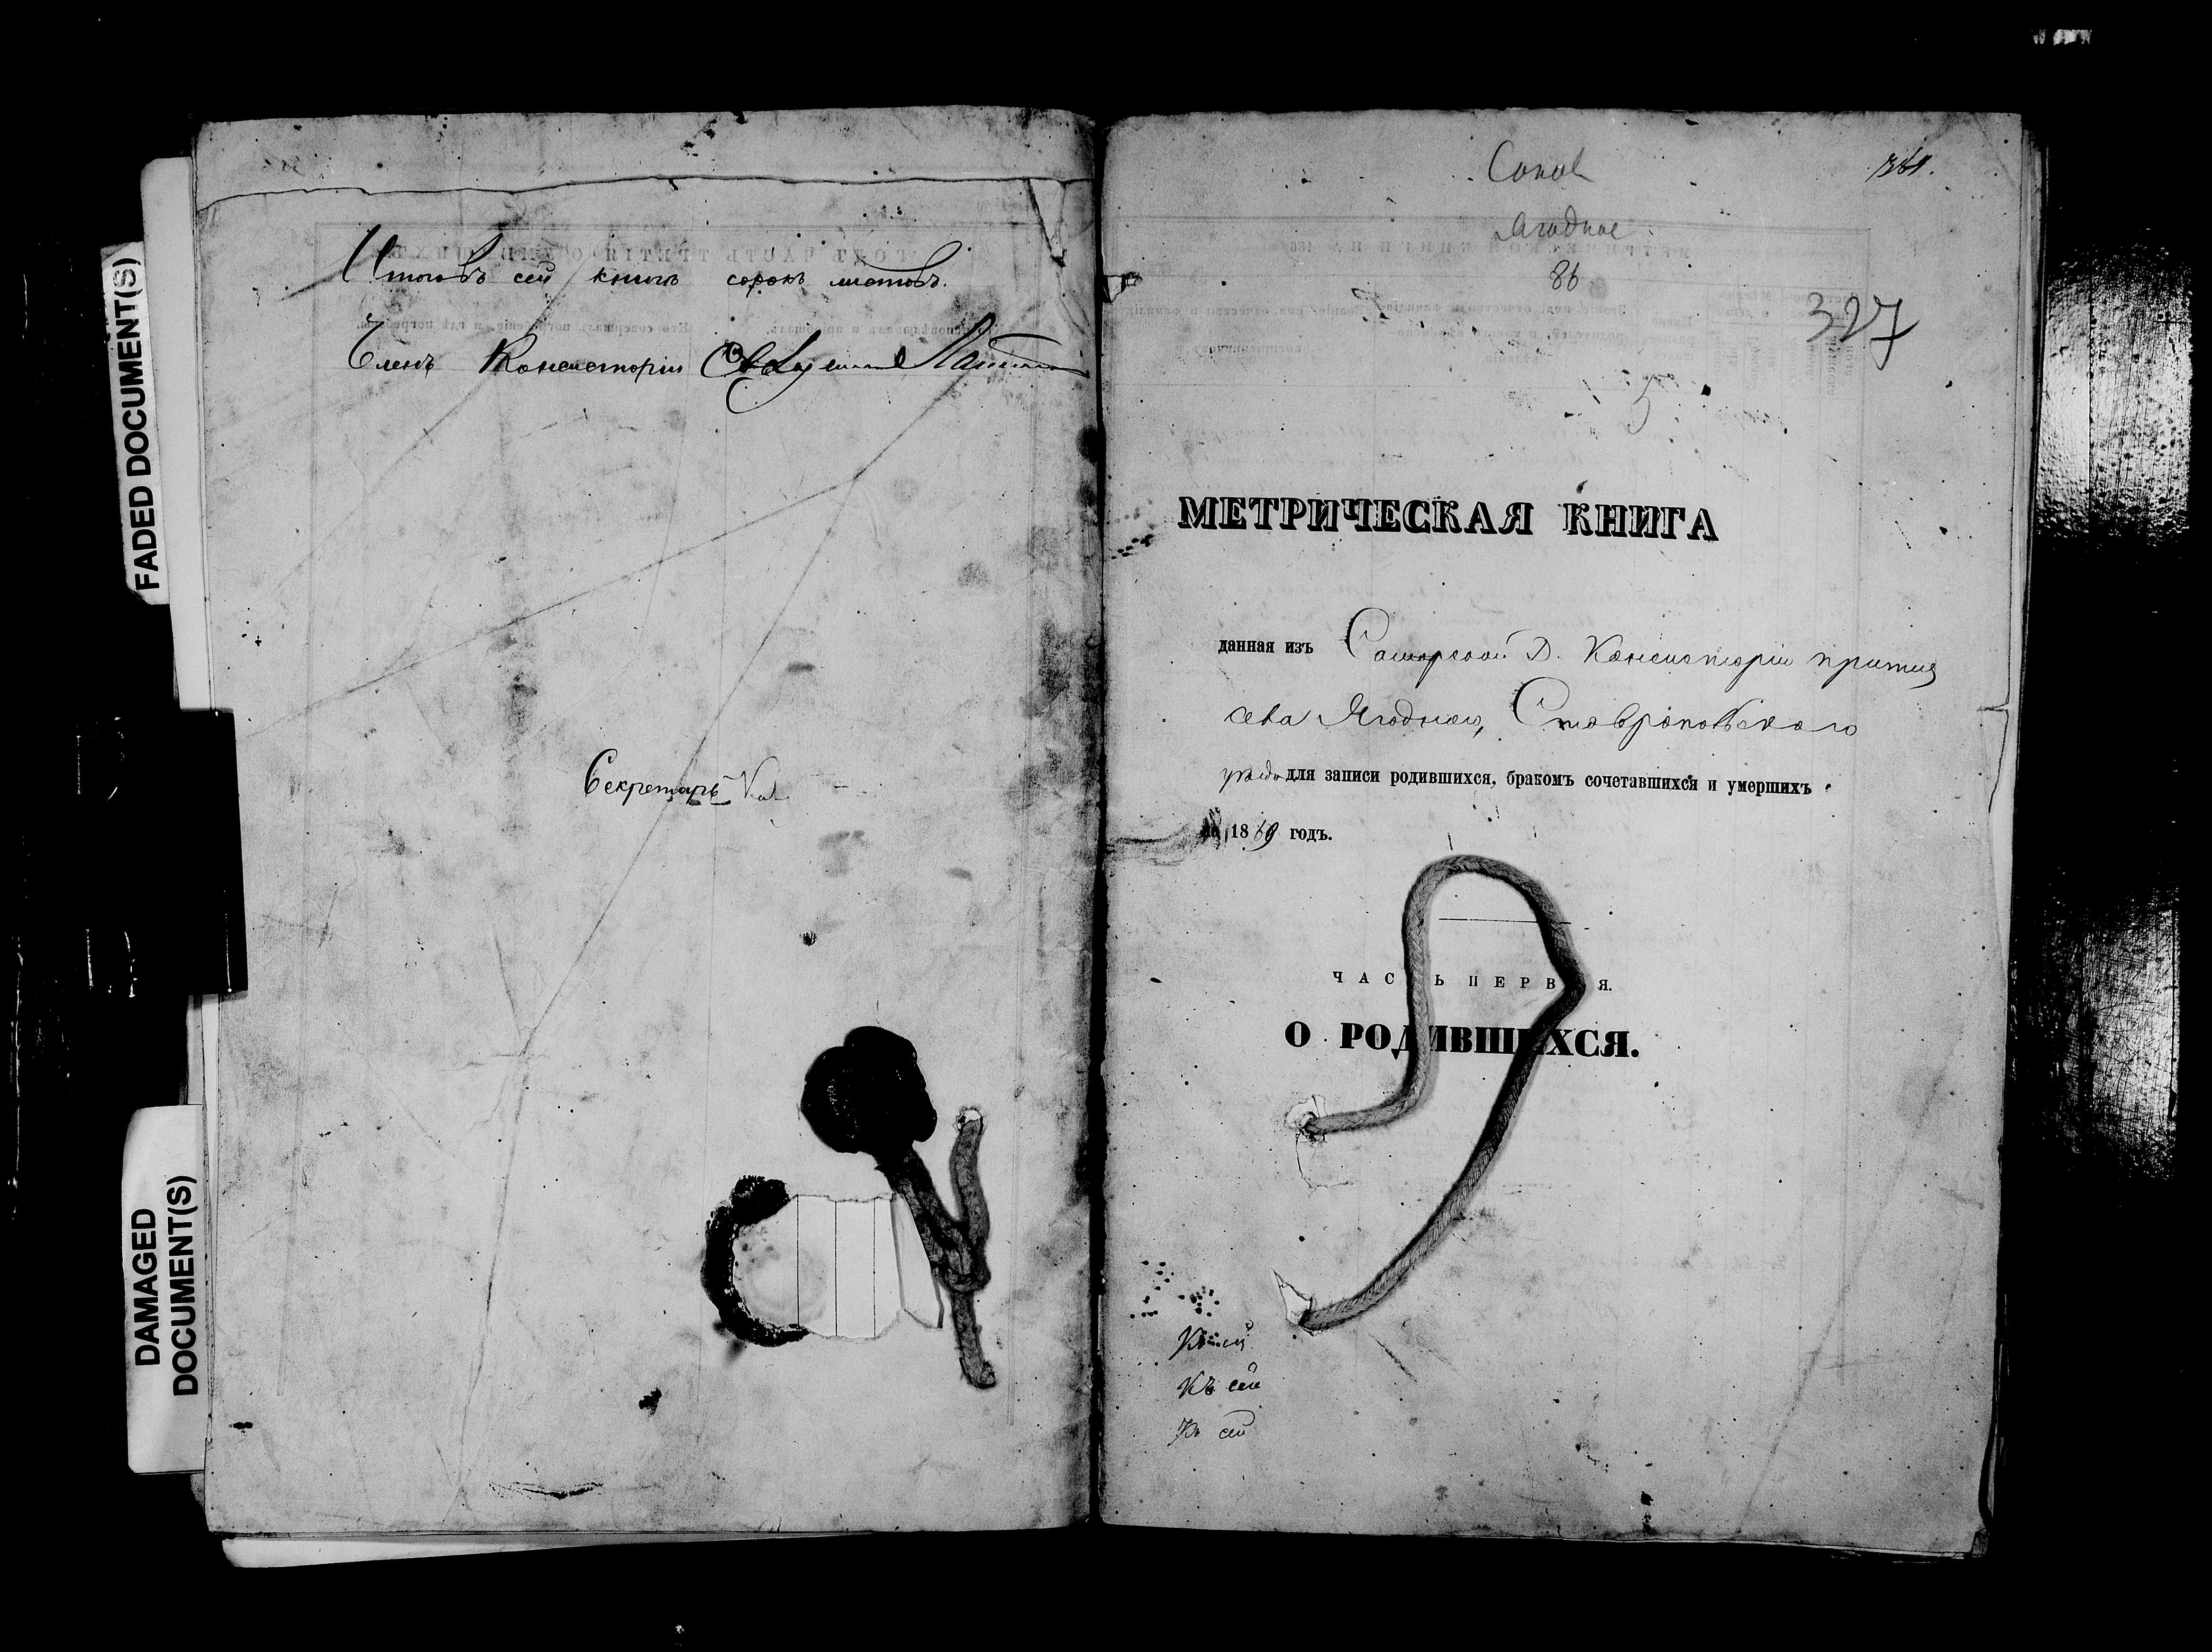 FADED DOCUMENT(S)
DAMAGED
DOCUMENT(S)
Итого въ сей книгѣ сорокъ листовъ.
Членъ Консисторіи Священникъ
Секретарь
361.
Ягодное
86
327
МЕТРИЧЕСКАЯ КНИГА
данная изъ Самарской Д. Консисторіи причту
села Ягоднаго, Ставропольскаго
уѣзда для записи родившихся, бракомъ сочетавшихся и умершихъ
на 1869 годъ.
ЧАСТЬ ПЕРВАЯ.
О РОДИВШИХСЯ.
Къ сей
Къ сей
Къ сей